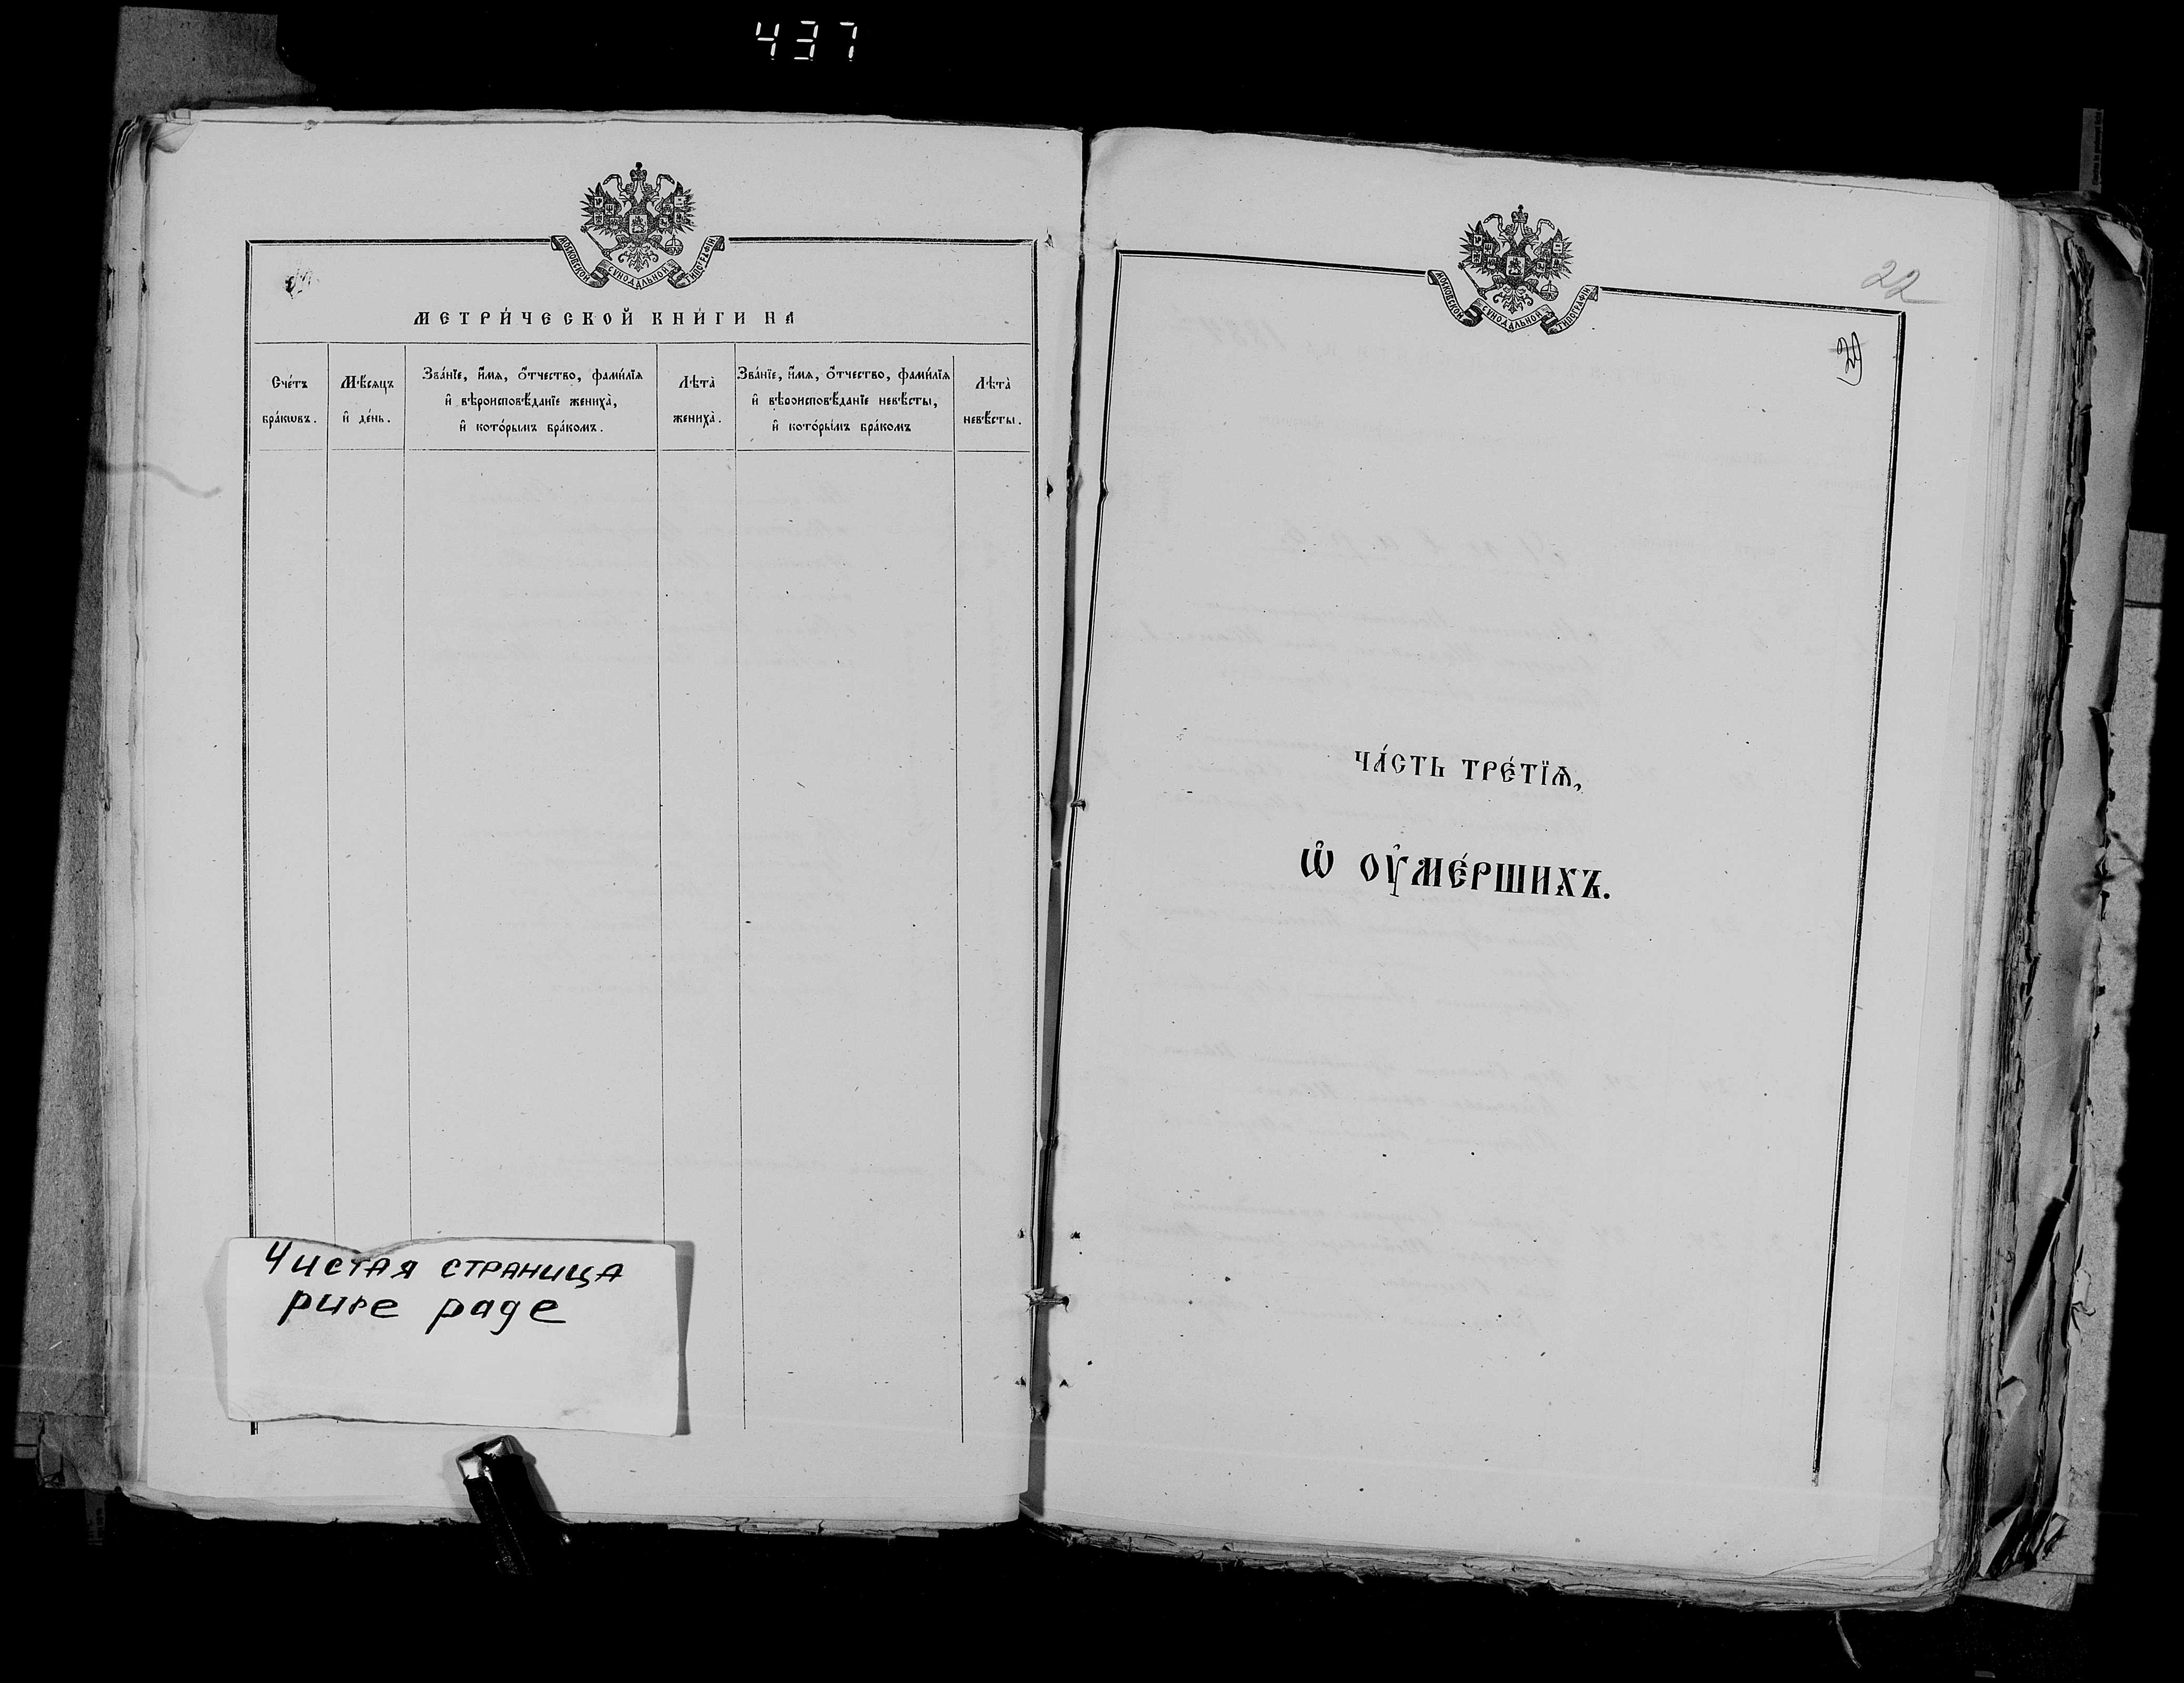 437
МОСКОВСКОЙ СѴНОДАЛЬНОЙ ТИПОГРАФІИ
МЕТРИ́ЧЕСКОЙ КНИ́ГИ НА
Сче́тъ
бра́кѡвъ.
Мѣ́сѧцъ
и҆ де́нь.
Зва́нїе, и҆́мѧ, ѻ҆́тчество, фами́лїѧ
и҆ вѣроисповѣ́данїе жениха̀,
и҆ кото́рымъ бра́комъ.
Лѣта̀
жениха̀.
Зва́нїе, и҆́мѧ, ѻ҆́тчество, фами́лїѧ
и҆ вѣроисповѣ́данїе невѣ́сты,
и҆ кото́рымъ бра́комъ
Лѣта̀
невѣ́сты.
Чистая страница
pure page
МОСКОВСКОЙ СѴНОДАЛЬНОЙ ТИПОГРАФІИ
22
ЧА́СТЬ ТРЕ́ТЇѦ,
Ѡ҆ ОУ҆МЕ́РШИХЪ.